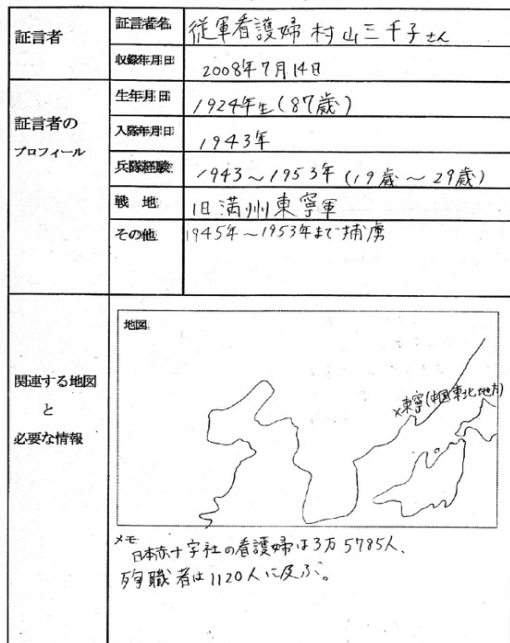 証言者
証言者名
従軍看護婦 村山三千子さん
収録年月日
2008年7月14日
証言者の
プロフィール
生年月日
1924年生(87歳)
入隊年月日
1943年
兵隊経験
1943〜1953年(19歳〜29歳)
戦 地
旧満州東寧軍
その他
1945年〜1953年まで捕虜
関連する地図
と
必要な情報
地図
×東寧(中国東北地方)
メモ
日本赤十字社の看護婦は3万5785人、
殉職者は1120人に及ぶ。